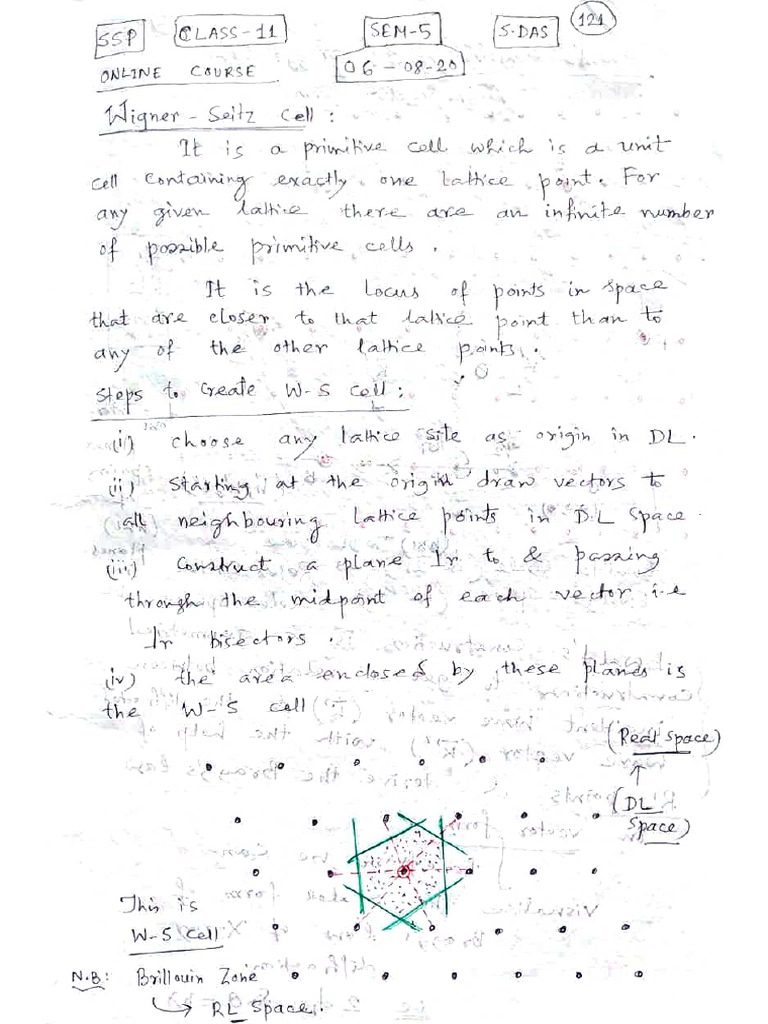 SSP CLASS-11 SEM-5 S.DAS 121
ONLINE COURSE 06-08-20
Wigner-Seitz Cell:
It is a primitive cell which is a unit
cell containing exactly one lattice point. For
any given lattice there are an infinite number
of possible primitive cells.
It is the locus of points in space
that are closer to that lattice point than to
any of the other lattice points.
Steps to create W-S cell:
(i) choose any lattice site as origin in DL.
(ii) Starting at the origin draw vectors to
all neighbouring lattice points in D.L Space.
(iii) Construct a plane Ir to & passing
through the midpoint of each vector i.e
Ir bisectors.
(iv) the area enclosed by these planes is
the W-S cell
(Real space)
(DL
Space)
This is
W-S Cell
N.B: Brillouin Zone
RL Space.